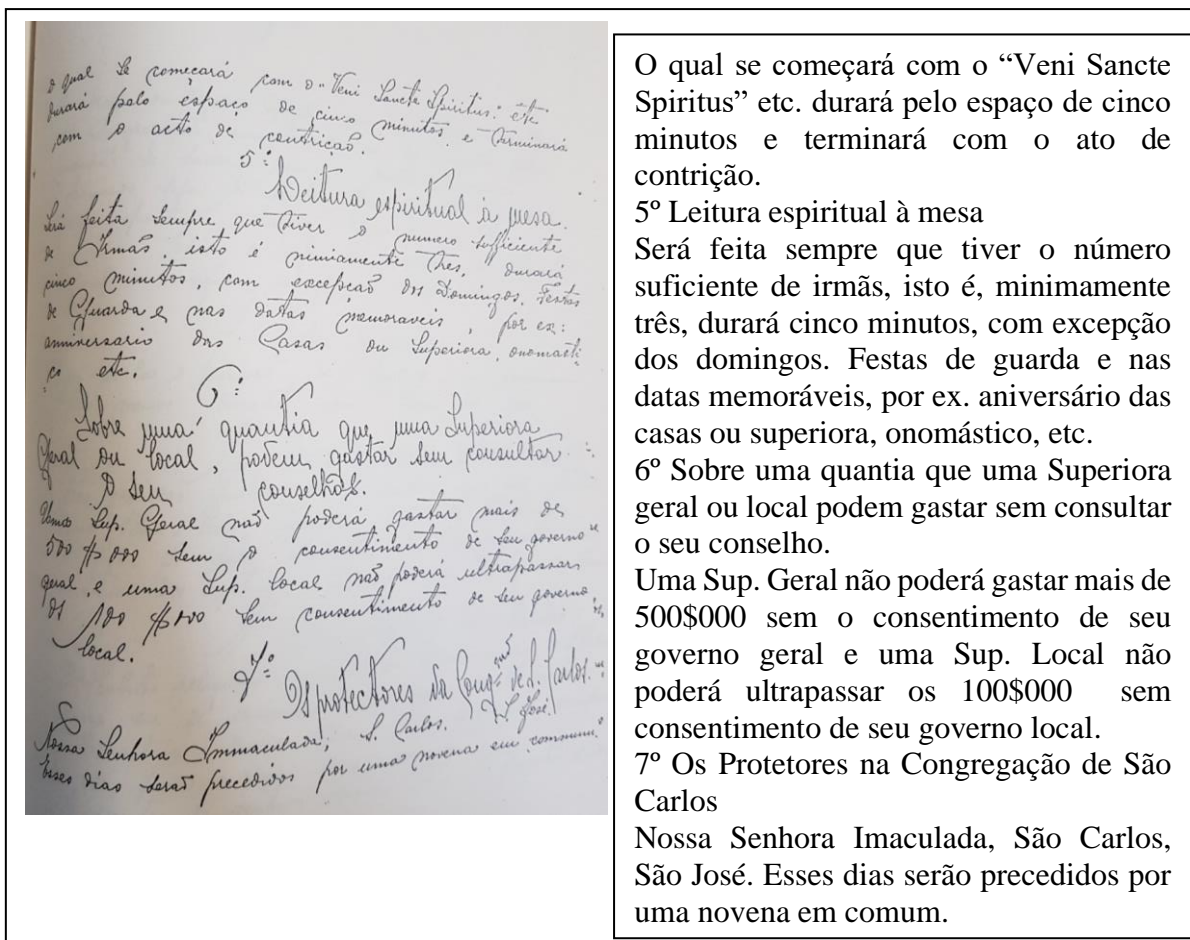 o qual se começará com o "Veni Sancte Spiritus". etc
durará pelo espaço de cinco minutos e terminará
com o acto de contrição.
5º:
Leitura espiritual à mesa.
Será feita sempre que tiver o numero sufficiente
de Irmãs, isto é miniamente tres, durará
cinco minutos, com excepção dos Domingos, Festas
de Guarda e nas datas memoraveis, por ex:
anniversario das Casas ou Superiora, onomasti-
co etc.
6º:
Sobre uma quantia que uma Superiora
Geral ou local, podem gastar sem consultar
o seu conselho.
Uma Sup. Geral não poderá gastar mais de
500$000 sem o consentimento de seu governo
geral, e uma Sup. local não poderá ultrapassar
os 100$000 sem consentimento de seu governo
local.
7º:
Os protectores da Congção de S. Carlos.
Nossa Senhora Immaculada, S. Carlos. S. José.
Esses dias serão precedidos por uma novena em commum.
O qual se começará com o “Veni Sancte
Spiritus” etc. durará pelo espaço de cinco
minutos e terminará com o ato de
contrição.
5º Leitura espiritual à mesa
Será feita sempre que tiver o número
suficiente de irmãs, isto é, minimamente
três, durará cinco minutos, com excepção
dos domingos. Festas de guarda e nas
datas memoráveis, por ex. aniversário das
casas ou superiora, onomástico, etc.
6º Sobre uma quantia que uma Superiora
geral ou local podem gastar sem consultar
o seu conselho.
Uma Sup. Geral não poderá gastar mais de
500$000 sem o consentimento de seu
governo geral e uma Sup. Local não
poderá ultrapassar os 100$000 sem
consentimento de seu governo local.
7º Os Protetores na Congregação de São
Carlos
Nossa Senhora Imaculada, São Carlos,
São José. Esses dias serão precedidos por
uma novena em comum.